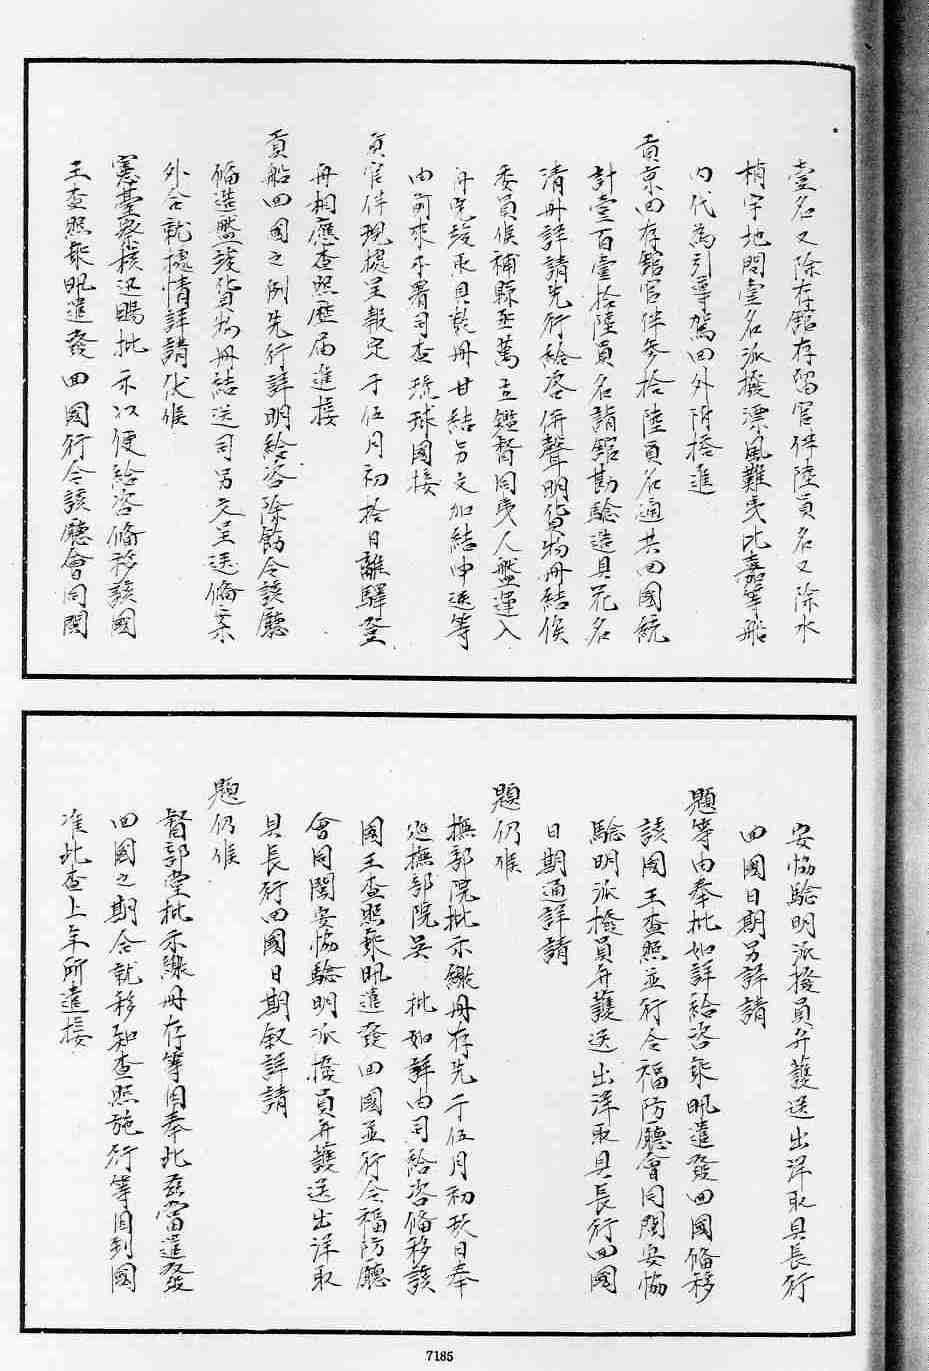 壹名又除存館存留官伴陸員名又除水
梢宇地問壹名派撥漂風難夷比嘉等船
內代為引導駕回外附搭進
貢京回存館官伴叁拾陸員名通共回國統
計壹百壹拾陸員名詣館勘驗造具花名
清冊詳請先行給咨併聲明貨物冊結俟
委員候補縣丞萬立鑑督同夷人盤運入
舟完竣取具乾冊甘結另文加結申送等
由前來本署司查琉球國接
貢官伴現據呈報定于伍月初拾日離驛登
舟相應查照歷届進接
貢船回國之例先行詳明給咨除飭令該廳
俻造盤該貨物冊結送司另文呈送俻案
外合就據情詳請伏候
憲臺察核迅賜批示以便給咨俻移該國
王查照乘汛遣發回國行令該廳會同閩
安協驗明派撥員弁護送出洋取具長行
回國日期另詳請
題等由奉批如詳給咨乘汛遣發回國俻移
該國王查照並行令福防廳會同閩安協
驗明派撥員弁護送出洋取具長行回國
日期通詳請
題仍候
撫部院批示繳冊存先于伍月初玖日奉
巡撫部院吳　批如詳由司給咨俻移該
國王查照乘汛遣發回國並行令福防廳
會同閩安協驗明派撥員弁護送出洋取
具長行回國日期叙詳請
題仍候
督部堂批示繳冊存等因奉此茲當遣發
回國之期合就移知查照施行等因到國
准此查上年所遣接
7185